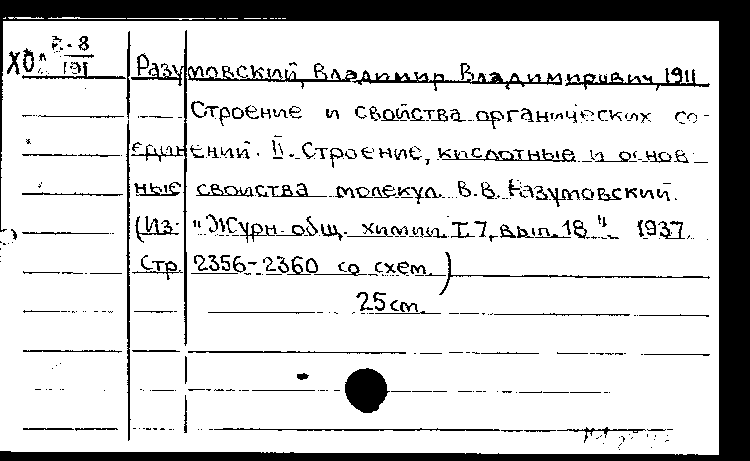 ХОЛ В-8/191
Разумовский, Владимир Владимирович, 1911
Строение и свойства органических со-
единений. II. Строение, кислотные и основ-
ные свойства молекул. В.В. Разумовский.
(Из: "Журн. общ. химии. Т. 7, вып. 18". 1937.
Стр. 2356-2360 со схем.)
25 см.